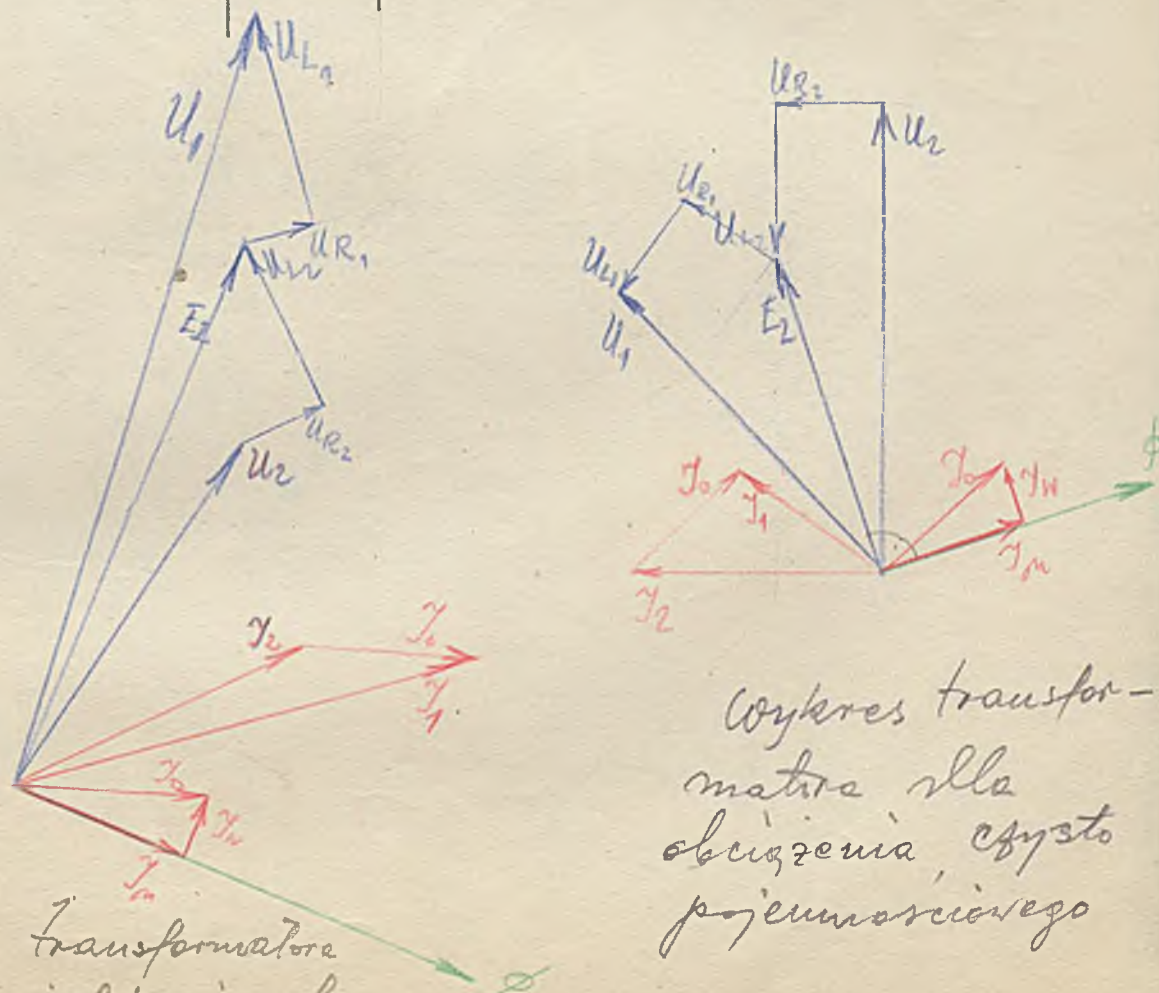 U₁
U_L₁
U_R₁
U_L₂
E₂
U_R₂
U₂
J₂
J₀
J₁
J₀
J_W
J_m
Φ
transformatora
U_R₂
U₂
U_R₁
U_L₂
U_L₁
U₁
E₂
J₀
J₁
J₂
J₀
J_W
J_m
Φ
Wykres transfor-
matora dla
obciążenia czysto
pojemnościowego